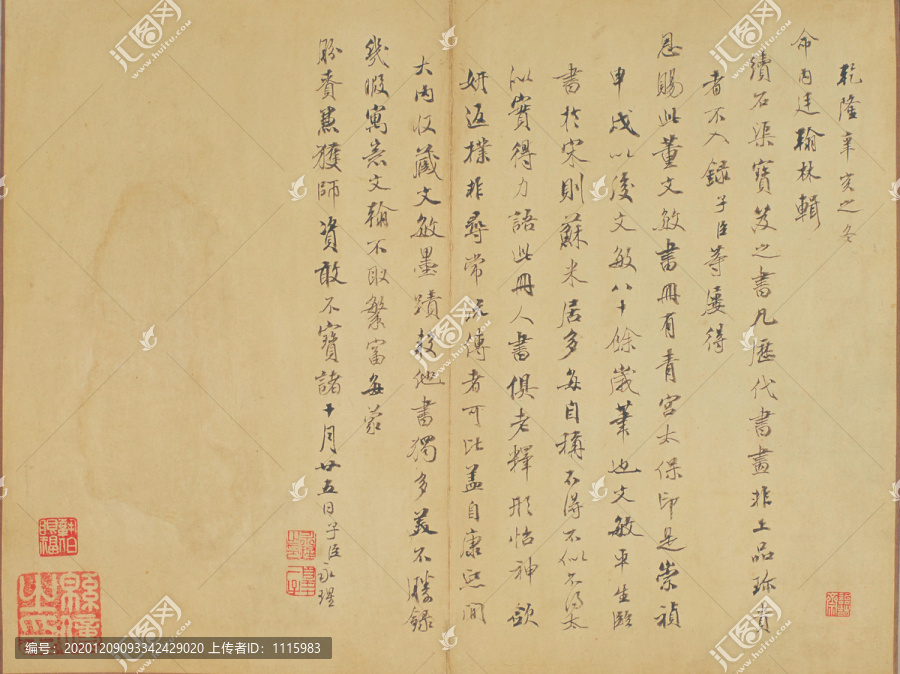 乾隆辛亥之冬
命內廷翰林輯
續石渠寶笈之書凡歷代書畫非上品珍賞
者不入錄子臣等屢得
恩賜此董文敏書冊有青宮太保印是崇禎
甲戌以後文敏八十餘歲筆也文敏平生臨
書於宋則蘇米居多每自稱不得不似不得太
似實得力語此冊人書俱老釋形怡神欲
妍返樸非尋常流傳者可比蓋自康熙間
大內收藏文敏墨蹟較他書獨多美不勝錄
幾暇寓意文翰不取繁富每蒙
頒賚慕獲師資敢不寶諸十月廿五日子臣永瑆
汇图网
www.huitu.com
编号：20201209093342429020 上传者ID：1115983